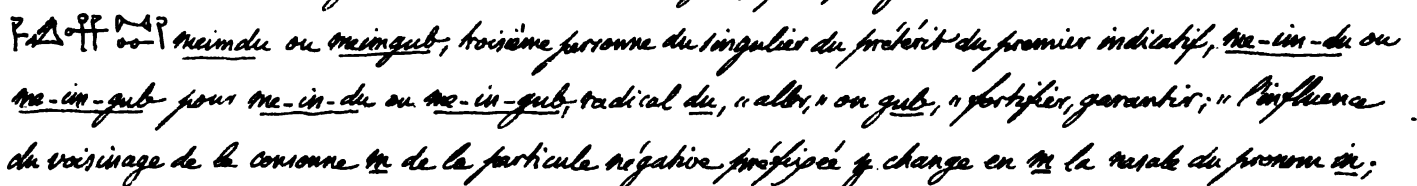 meimdu ou meimgub, troisième personne du singulier du prétérit du premier indicatif, me-im-du ou
me-im-gub pour me-in-du ou me-in-gub, radical du, "aller," ou gub, "fortifier, garantir;" l'influence
du voisinage de la consonne m de la particule négative préfixée y change en m la nasale du pronom in;